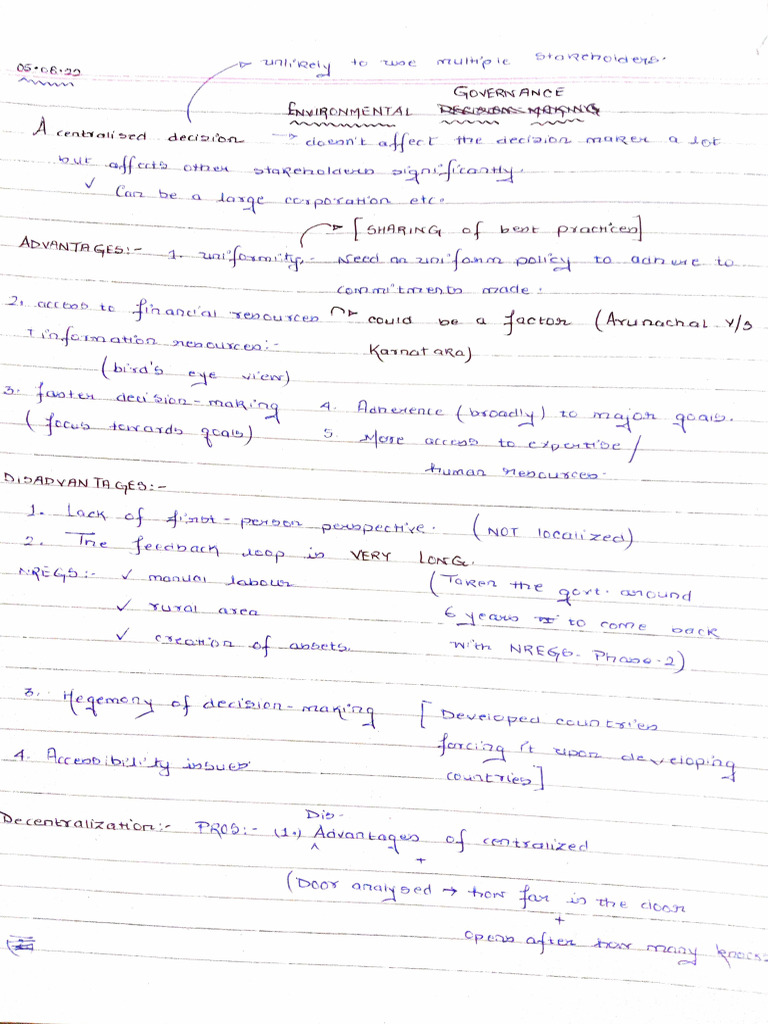 05.08.22
→ unlikely to use multiple stakeholders.
GOVERNANCE
ENVIRONMENTAL DECISION MAKING
A centralised decision → doesn't affect the decision maker a lot
but affects other stakeholders significantly.
✓ Can be a large corporation etc.
→ [SHARING of best practices]
ADVANTAGES:- 1. uniformity - Need an uniform policy to adhere to
commitments made.
2. access to financial resources → could be a factor (Arunachal v/s
+ information resources:- Karnataka)
(bird's eye view)
3. faster decision-making 4. Adherence (broadly) to major goals.
(focus towards goals) 5. More access to expertise/
human resources.
DISADVANTAGES:-
1. Lack of first-person perspective. (NOT localized)
2. The feedback loop is VERY LONG.
NREGS:- ✓ manual labour (Taken the govt. around
✓ rural area 6 years to come back
✓ creation of assets. with NREGS- Phase-2)
3. Hegemony of decision-making [Developed countries
forcing it upon developing
4. Accessibility issues countries]
Decentralization:- PROS:- (1.) Dis-Advantages of centralized
+
(Door analysed → how far is the door
+
opens after how many knocks